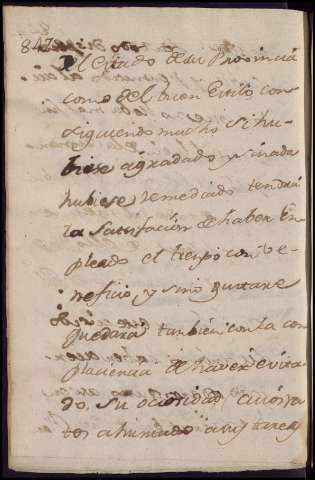 847
El Citado de su Provincia
como del buen Estilo con
siguiendo mucho si hu-
biese agradado y si nada
hubiese remediado tendrá
la Satisfación de haber En
pleado el tiempo con be-
neficio y sino gustare
quedara tambien con la con
placencia de haver evita
do, su ociosidad cuios ra
tos a tareas